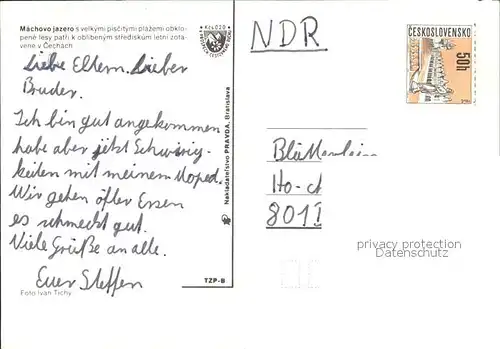 Máchovo jazero s velkými písčitými plážemi obklo-
pené lesy patří k oblíbeným střediskům letní zota-
vene v Čechách
Liebe Eltern. Lieber
Bruder.
Ich bin gut angekommen
habe aber jetzt Schwirig-
keiten mit meinem Moped.
Wir gehen öfter Essen
es schmeckt gut.
Viele Grüße an alle.
Euer Steffen
Foto Ivan Tichý
TZP-B
Nakladatelstvo PRAVDA, Bratislava
Kčs 0,20
NDR
ČESKOSLOVENSKO
50h
801
privacy protection
Datenschutz